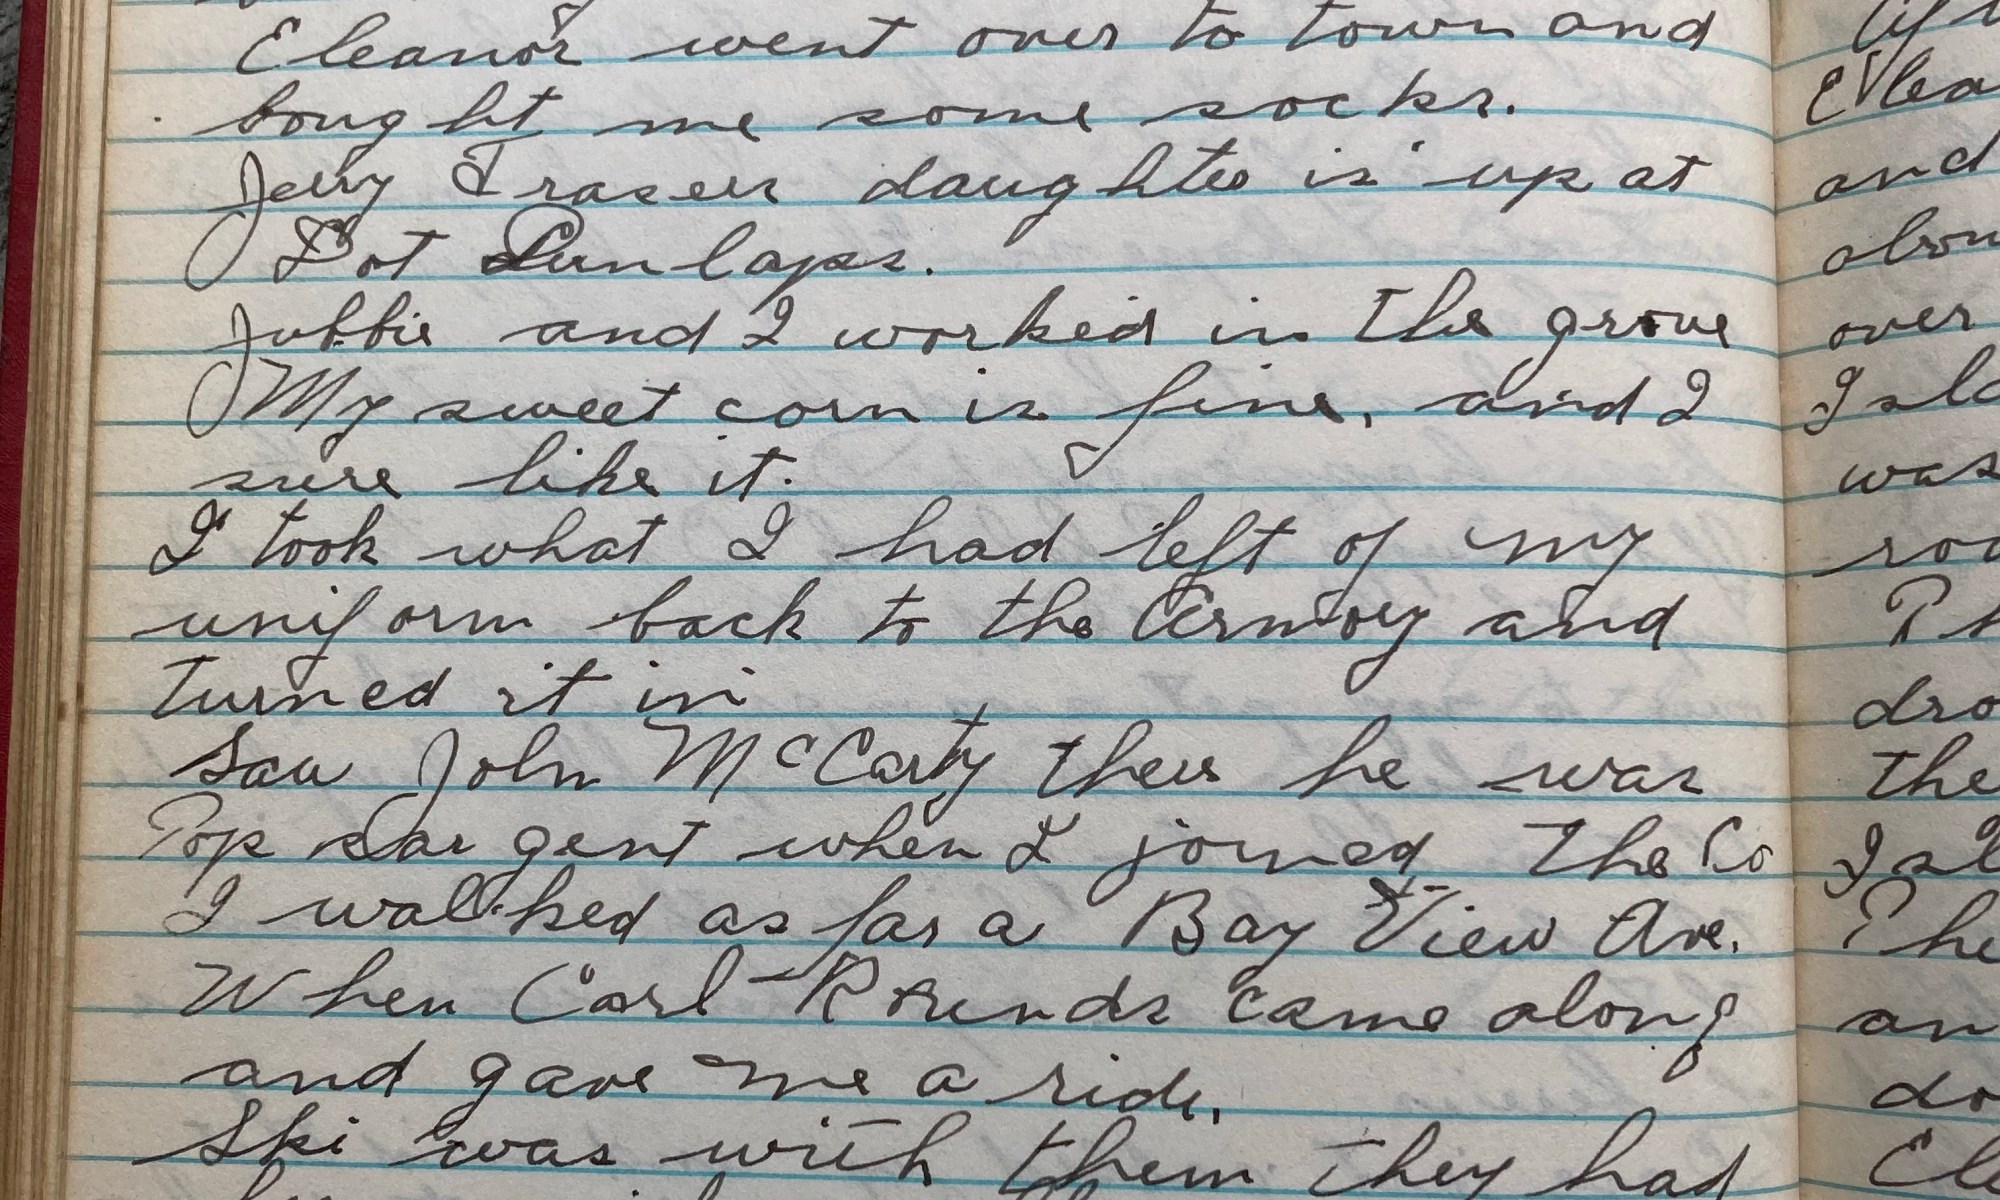 Eleanor went over to town and
bought me some socks.
Jerry Fraser daughter is up at
Dot Dunlaps.
Jubbie and I worked in the grove
My sweet corn is fine, and I
sure like it.
I took what I had left of my
uniform back to the Armory and
turned it in
Saw John McCarty there he was
Top Sargent when I joined the Co
I walked as far a Bay View Ave.
When Carl Rounds came along
and gave me a ride.
Ski was with them they had
Elea
and
over
I sl
was
the
I sl
an
do